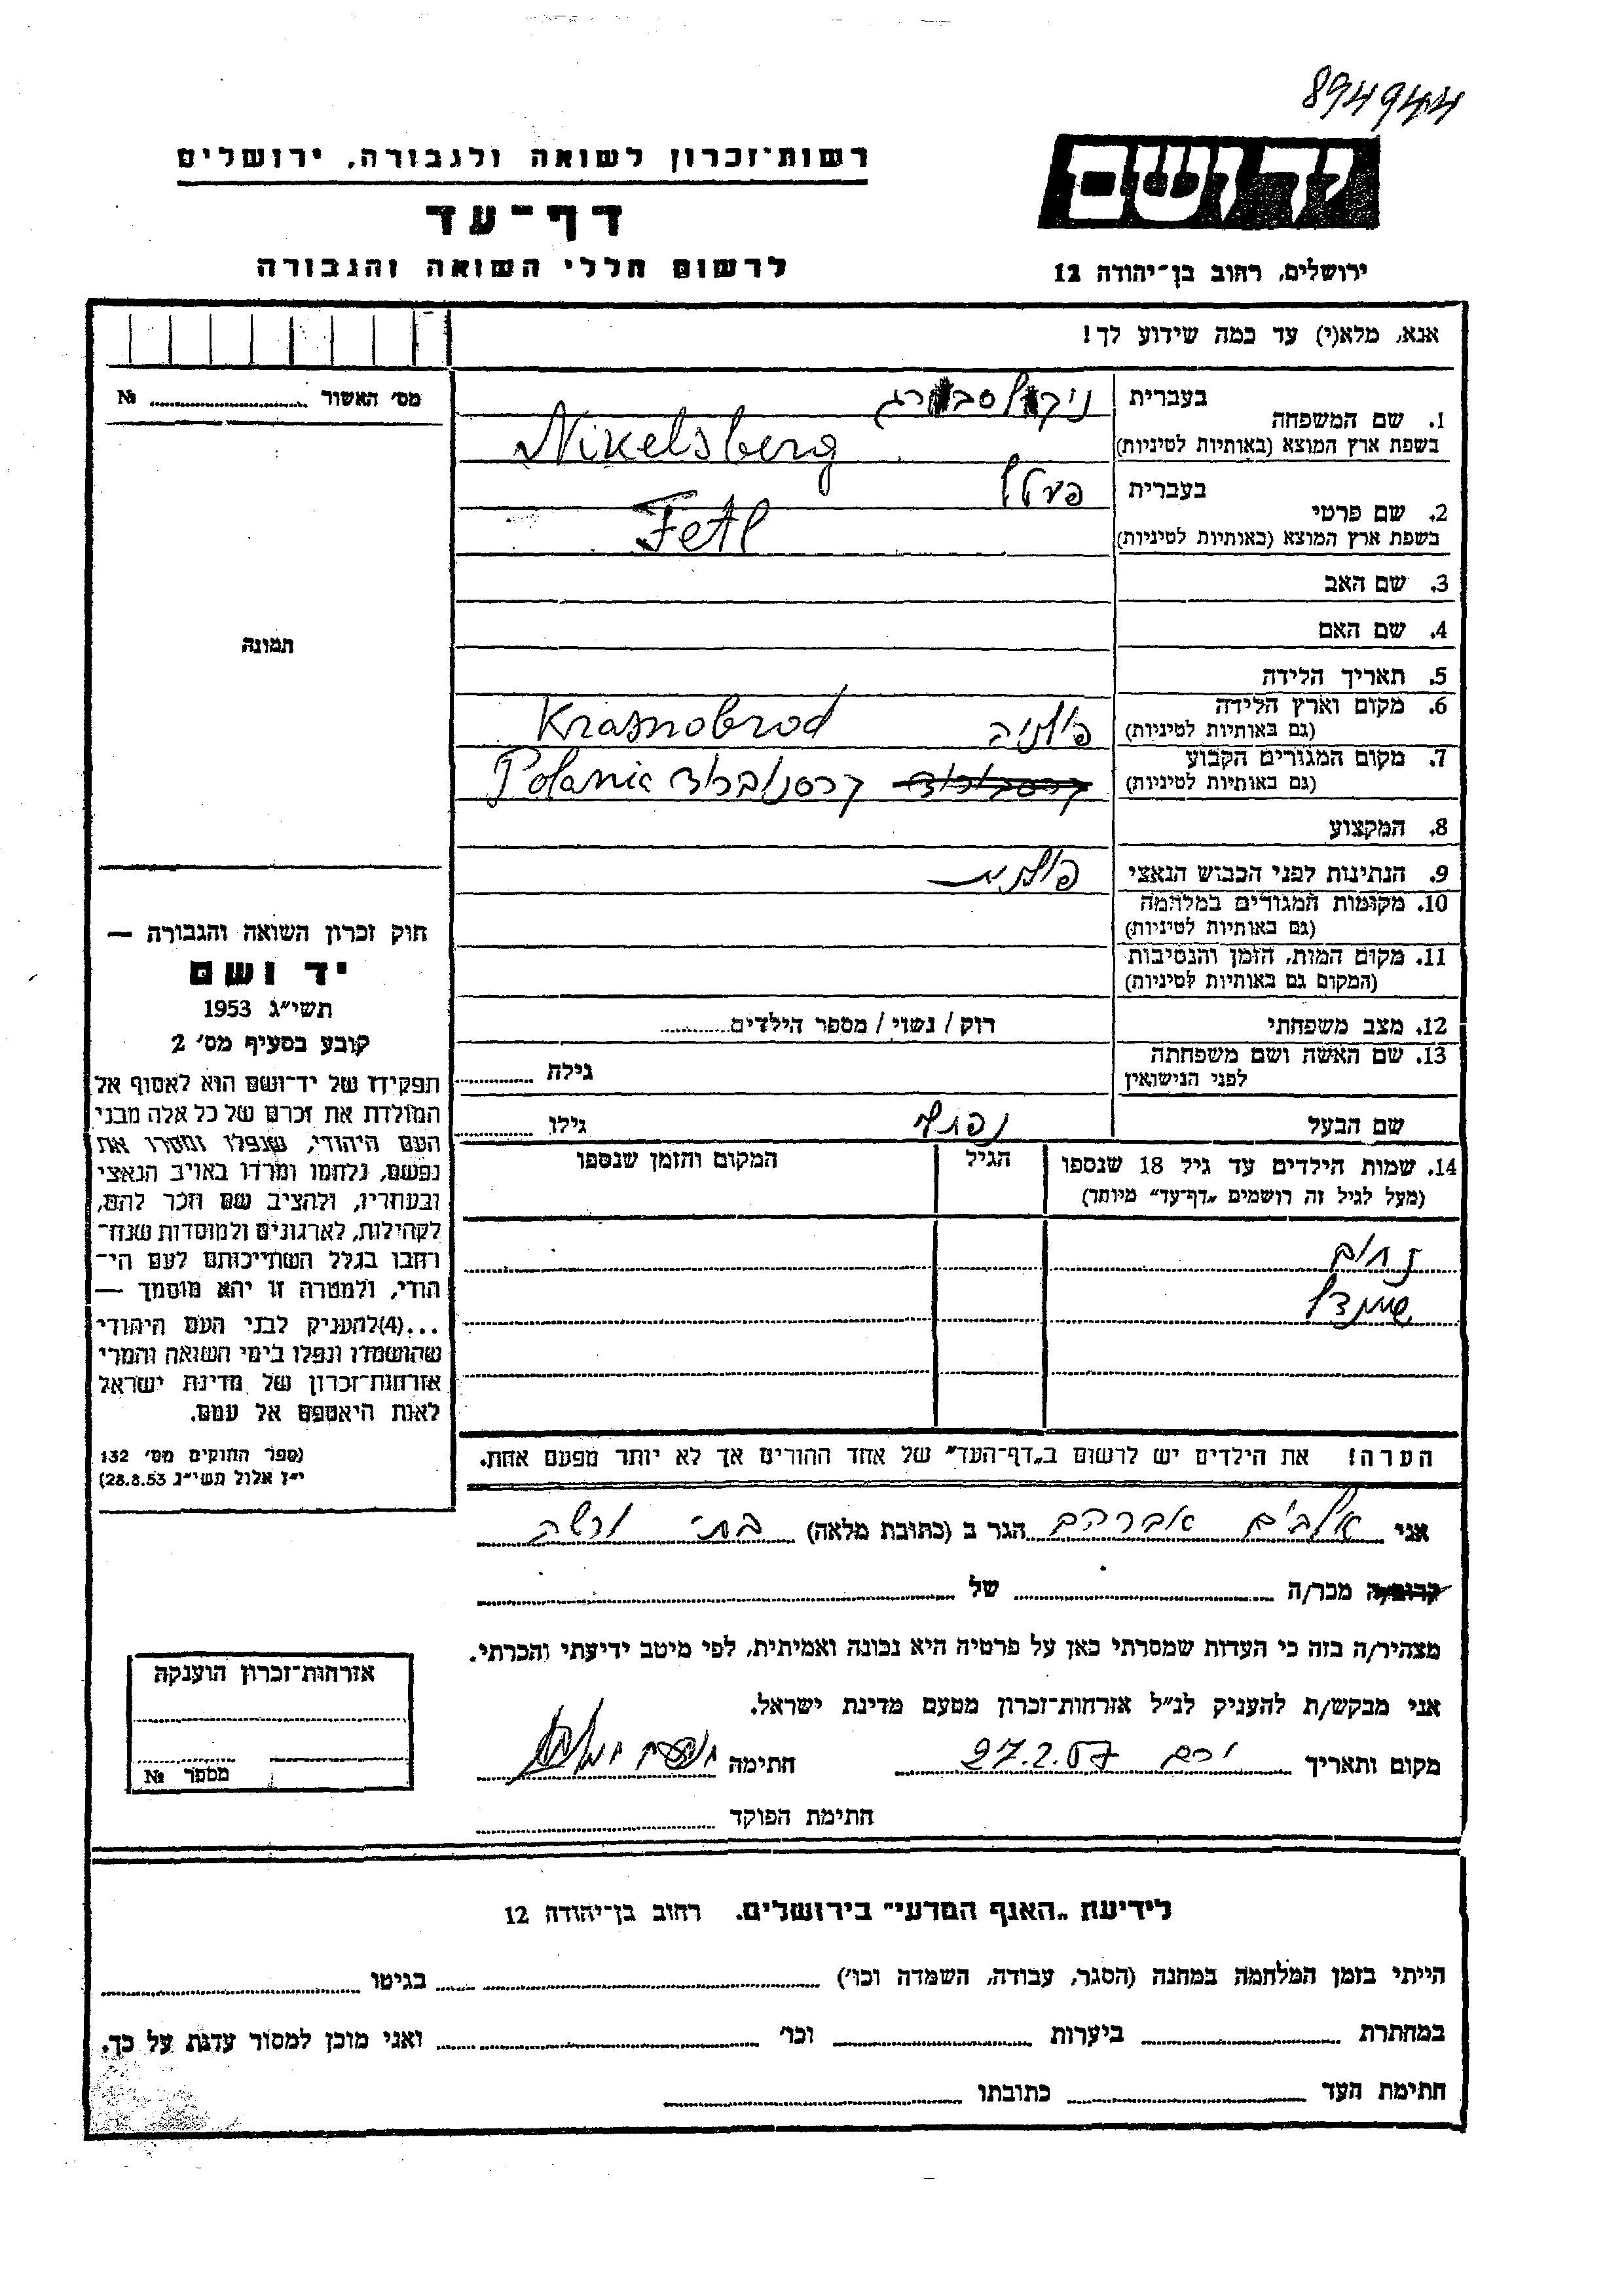 894944
יד ושם
רשות־זכרון לשואה ולגבורה, ירושלים
דף־עד
לרשום חללי השואה והגבורה
ירושלים, רחוב בן־יהודה 12
אנא, מלא(י) עד כמה שידוע לך!
מס׳ האשור ........ №
תמונה
1. שם המשפחה
בעברית
בשפת ארץ המוצא (באותיות לטיניות)
Nikelsberg
2. שם פרטי
בעברית
בשפת ארץ המוצא (באותיות לטיניות)
Fetl
3. שם האב
4. שם האם
5. תאריך הלידה
6. מקום וארץ הלידה
(גם באותיות לטיניות)
פולניה Krasnobrod
7. מקום המגורים הקבוע
(גם באותיות לטיניות)
קרסנוברוד Polania
8. המקצוע
9. הנתינות לפני הכבוש הנאצי
פולנית
10. מקומות המגורים במלחמה
(גם באותיות לטיניות)
11. מקום המות, הזמן והנסיבות
(המקום גם באותיות לטיניות)
12. מצב משפחתי
רוק / נשוי / מספר הילדים........
13. שם האשה ושם משפחתה
לפני הנישואין
גילה ........
שם הבעל
גילו ........
14. שמות הילדים עד גיל 18 שנספו
(מעל לגיל זה רושמים „דף־עד” מיוחד)
הגיל
המקום והזמן שנספו
נחום
שיינדל
הערה! את הילדים יש לרשום ב„דף־העד” של אחד ההורים אך לא יותר מפעם אחת.
חוק זכרון השואה והגבורה —
יד ושם
תשי״ג 1953
קובע בסעיף מס׳ 2
תפקידו של יד־ושם הוא לאסוף אל
המולדת את זכרם של כל אלה מבני
העם היהודי, שנפלו ומסרו את
נפשם, נלחמו ומרדו באויב הנאצי
ובעוזריו, ולהציב שם וזכר להם,
לקהילות, לארגונים ולמוסדות שנח־
רבו בגלל השתייכותם לעם הי־
הודי, ולמטרה זו יהא מוסמך —
...(4)להעניק לבני העם היהודי
שהושמדו ונפלו בימי השואה והמרי
אזרחות־זכרון של מדינת ישראל
לאות היאספם אל עמם.
(ספר החוקים מס׳ 132
י״ז אלול תשי״ג 28.8.53)
אני ........ אברהם הגר ב (כתובת מלאה) ........
קרוב/ה מכר/ה ........ של ........
מצהיר/ה בזה כי העדות שמסרתי כאן על פרטיה היא נכונה ואמיתית, לפי מיטב ידיעתי והכרתי.
אני מבקש/ת להעניק לנ״ל אזרחות־זכרון מטעם מדינת ישראל.
מקום ותאריך ........ 27.2.57 חתימה ........
חתימת הפוקד ........
אזרחות־זכרון הוענקה
מספר №
לידיעת „האגף המדעי” בירושלים. רחוב בן־יהודה 12
הייתי בזמן המלחמה במחנה (הסגר, עבודה, השמדה וכו׳) ........ בגיטו ........
במחתרת ........ ביערות ........ וכו׳ ........ ואני מוכן למסור עדות על כך.
חתימת העד ........ כתובתו ........